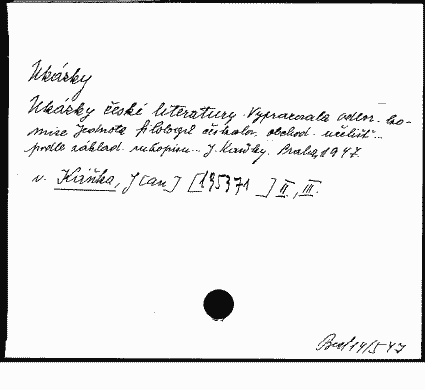 Ukázky
Ukázky české literatury. Vypracovala odbor. ko-
mise Jednota filologů českoslov. obchod. učelišť...
podle základ. rukopisu... J. Kaňky. Praha, 1947.
v. Kaňka, J[an] [195371] II, III.
14/547